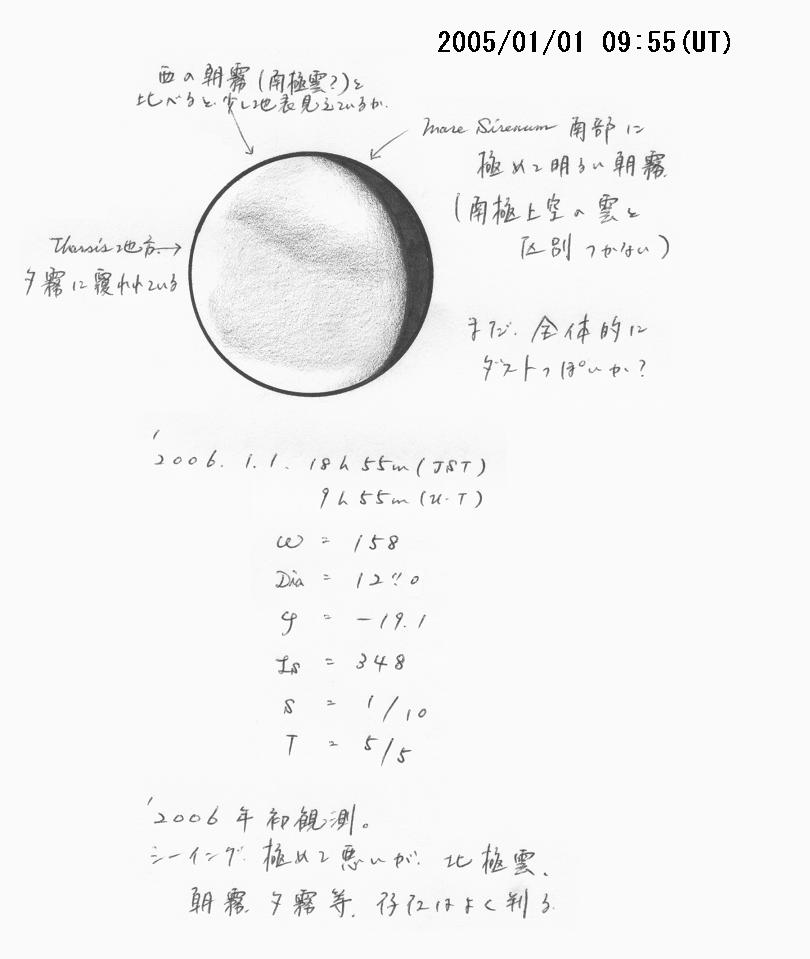 2005/01/01 09:55(UT)
西の朝霧(南極雲?)と
比べると、少し地表見えているか.
Mare Sirenum 南部に
極めて明るい朝霧.
(南極上空の雲と
区別つかない)
Tharsis地方.
夕霧に覆われている
まだ、全体的に
ダストっぽいか?
'2006. 1. 1. 18h 55m (JST)
9h 55m (U.T)
ω = 158
Dia = 12."0
φ = -19.1
Ls = 348
S = 1/10
T = 5/5
'2006年初観測。
シーイング 極めて悪いが、北極雲、
朝霧、夕霧等、存在はよく判る.